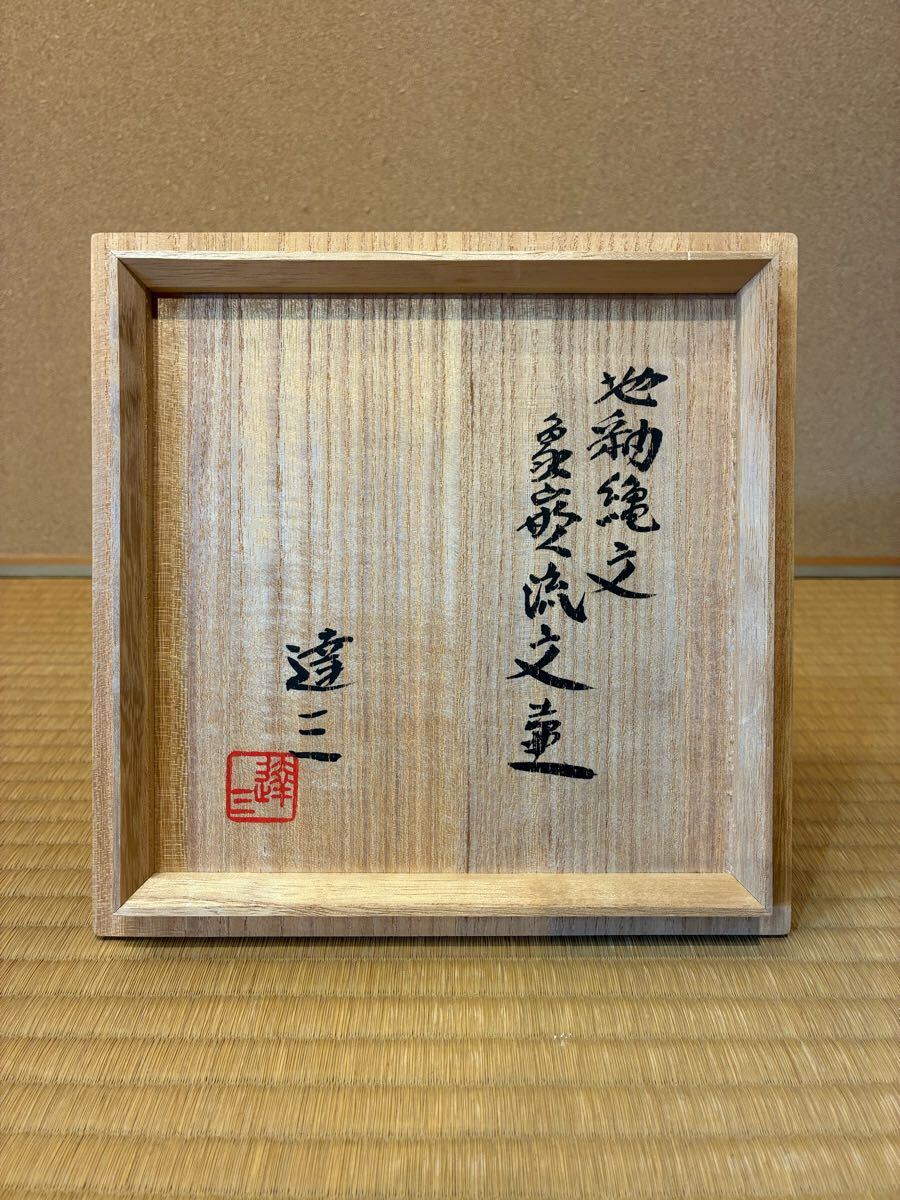 地釉縄文
象嵌流文壷
達三
達三